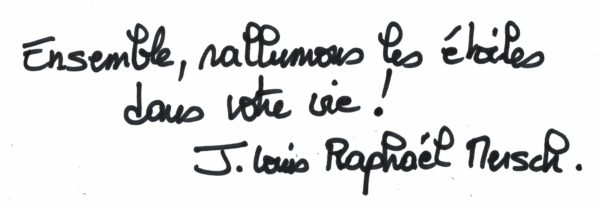 Ensemble, rallumons les étoiles
dans votre vie !
J. Louis Raphaël Mersch.